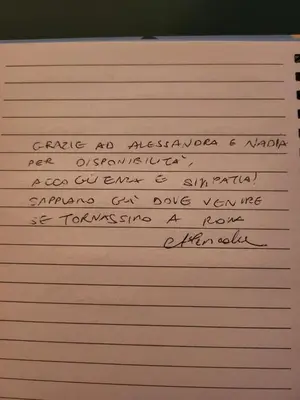 GRAZIE AD ALESSANDRA E NADIA
PER DISPONIBILITÀ,
ACCOGLIENZA E SIMPATIA!
SAPPIAMO GIÀ DOVE VENIRE
SE TORNASSIMO A ROMA